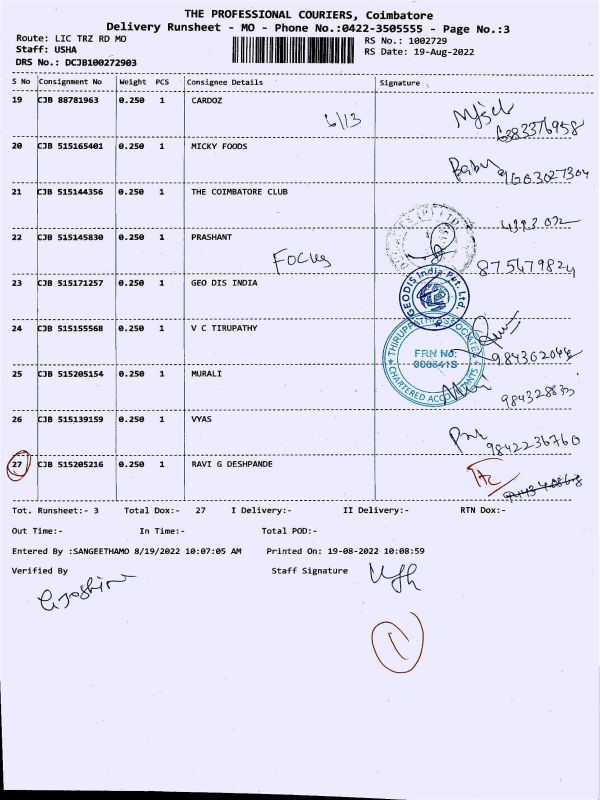 THE PROFESSIONAL COURIERS, Coimbatore
Delivery Runsheet - MO - Phone No.:0422-3505555 - Page No.:3
Route: LIC TRZ RD MO RS No.: 1002729
Staff: USHA RS Date: 19-Aug-2022
DRS No.: DCJB100272903
S No Consignment No Weight PCS Consignee Details Signature
19 CJB 88781963 0.250 1 CARDOZ
6/13 6383376958
20 CJB 515165401 0.250 1 MICKY FOODS
Baby 9603027304
21 CJB 515144356 0.250 1 THE COIMBATORE CLUB
22 CJB 515145830 0.250 1 PRASHANT
Focus 875479824
23 CJB 515171257 0.250 1 GEO DIS INDIA
GEODIS India Pvt. Ltd
24 CJB 515155568 0.250 1 V C TIRUPATHY
FRN No:
CHARTERED ACCOUNTANTS
25 CJB 515205154 0.250 1 MURALI
26 CJB 515139159 0.250 1 VYAS
9842236760
27 CJB 515205216 0.250 1 RAVI G DESHPANDE
Tot. Runsheet:- 3 Total Dox:- 27 I Delivery:- II Delivery:- RTN Dox:-
Out Time:- In Time:- Total POD:-
Entered By :SANGEETHAMO 8/19/2022 10:07:05 AM Printed On: 19-08-2022 10:08:59
Verified By Staff Signature
1